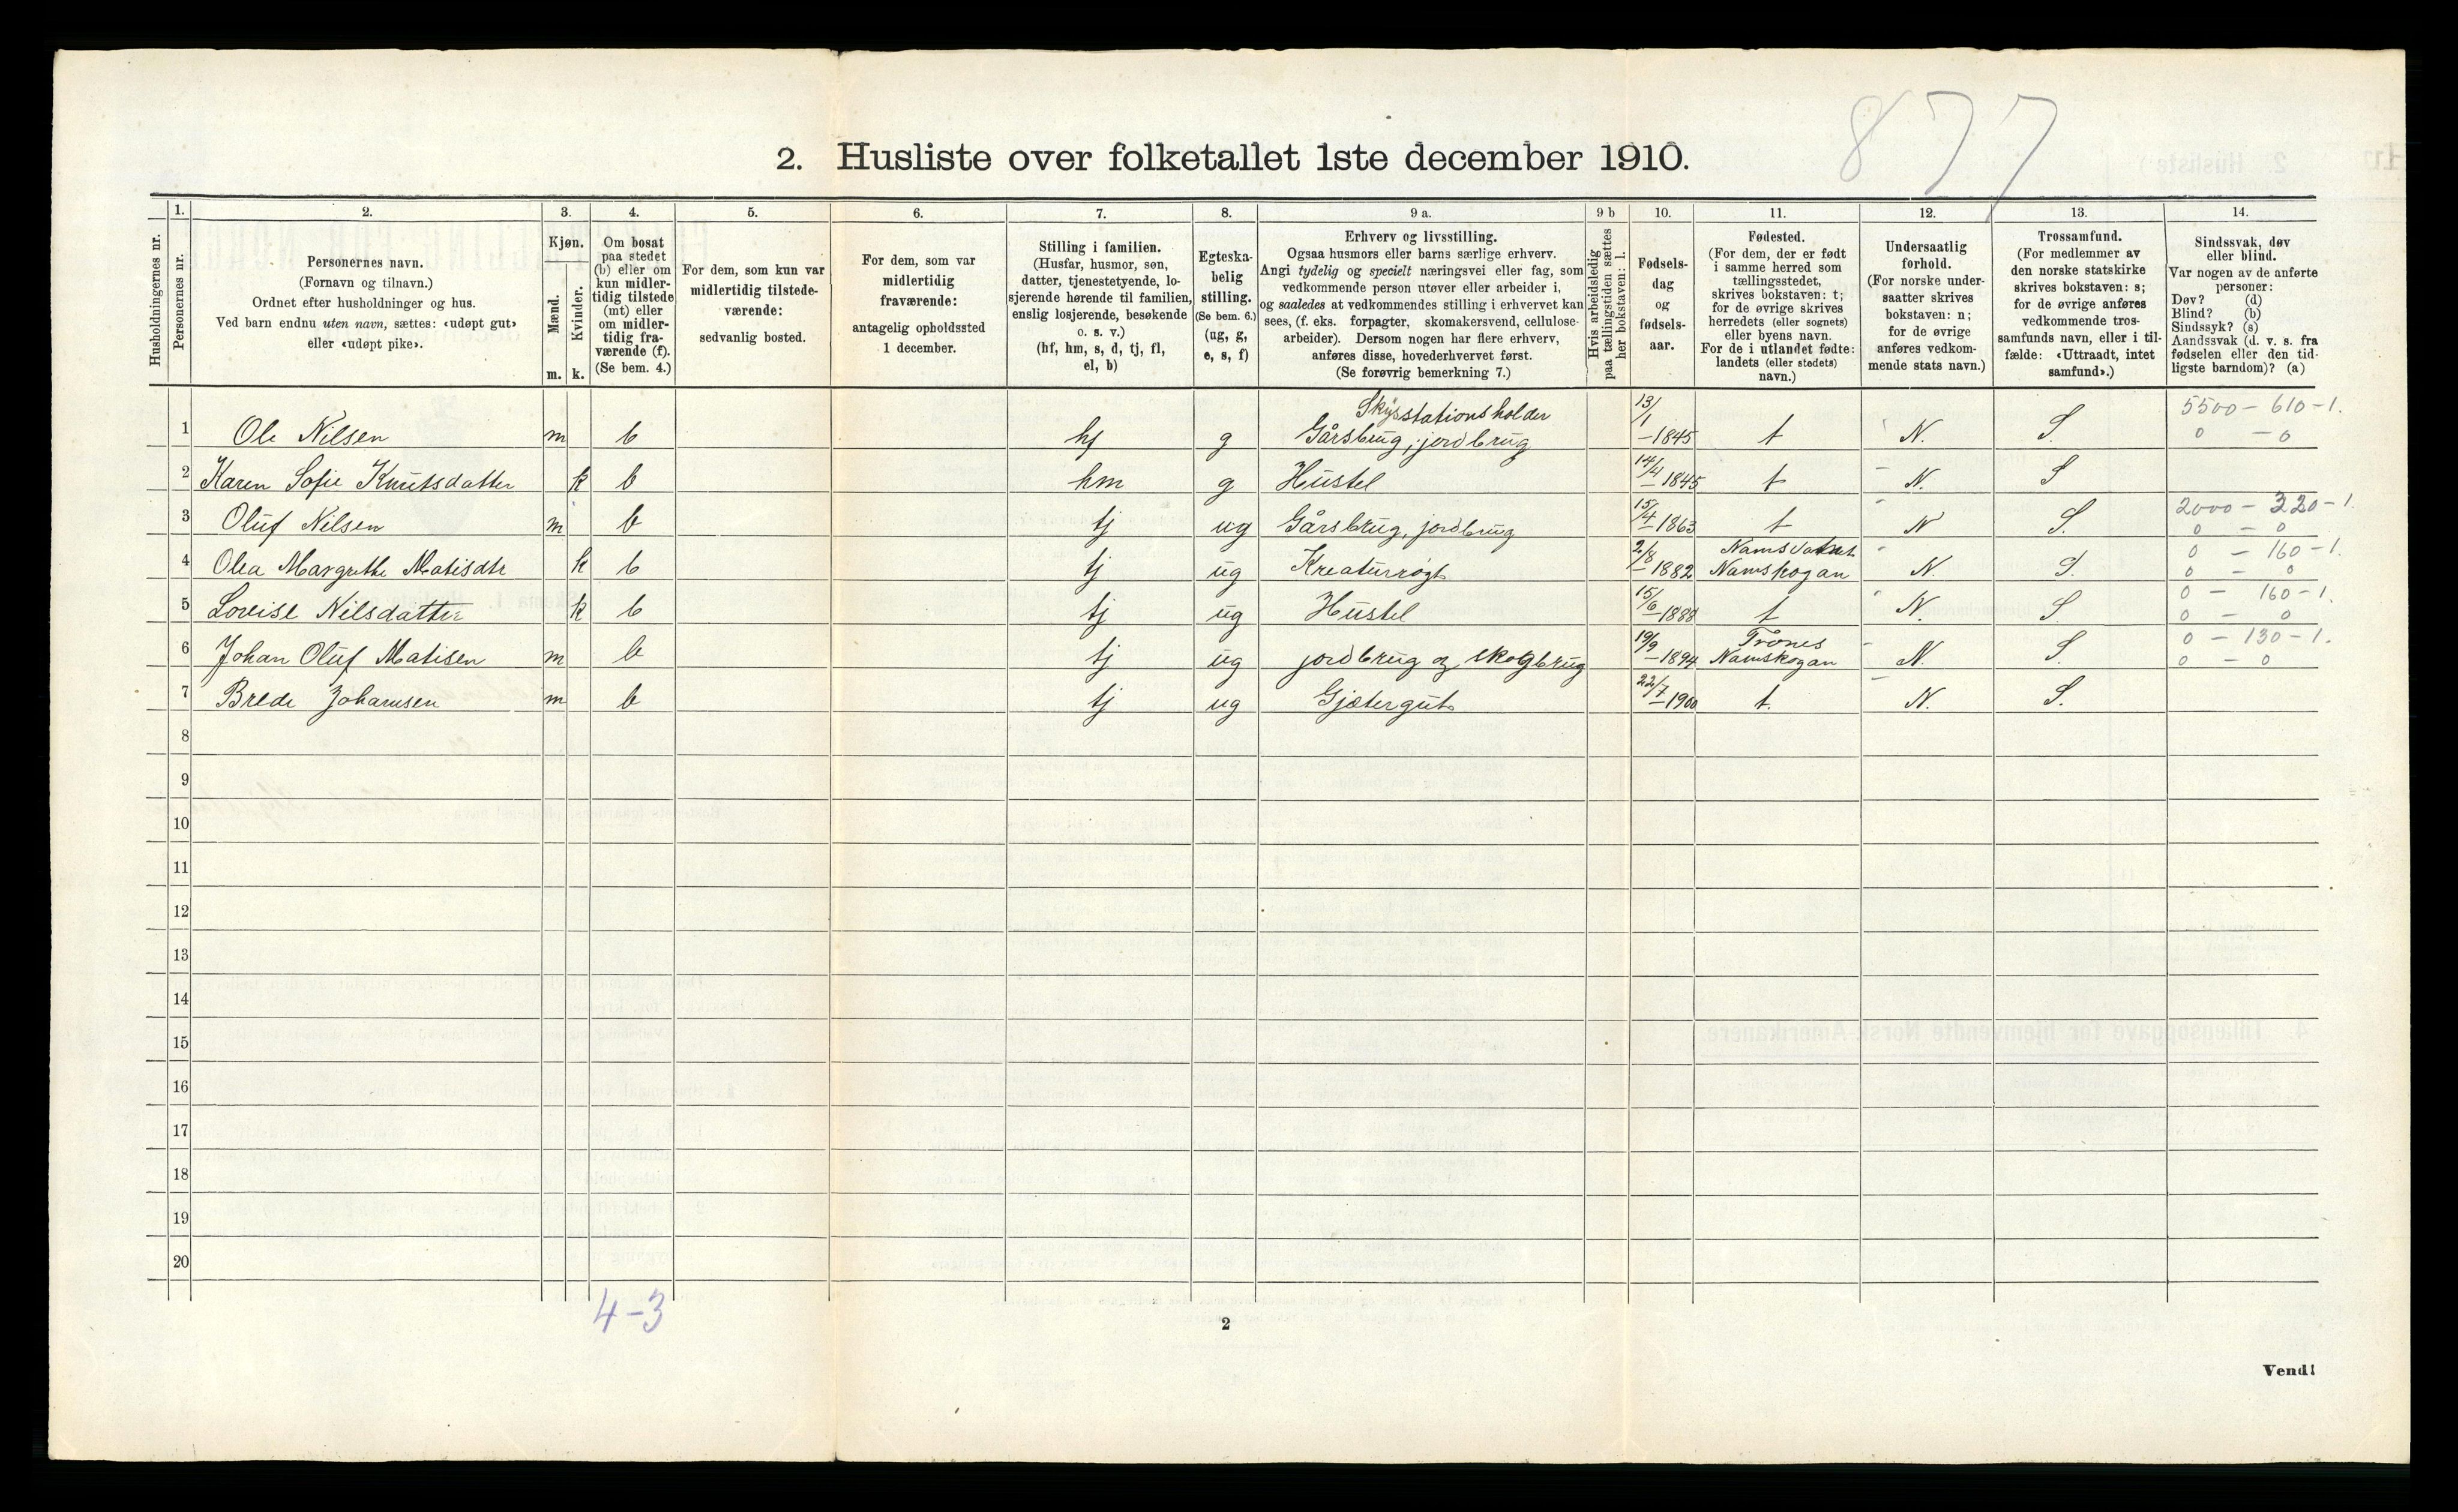 877
2. Husliste over folketallet 1ste december 1910.
Husholdningernes nr.
1. Personernes nr.
2. Personernes navn.
(Fornavn og tilnavn.)
Ordnet efter husholdninger og hus.
Ved barn endnu uten navn, sættes: «udøpt gut»
eller «udøpt pike».
3. Kjøn.
Mænd. m.
Kvinder. k.
4. Om bosat
paa stedet
(b) eller om
kun midler-
tidig tilstede
(mt) eller
om midler-
tidig fra-
værende (f).
(Se bem. 4.)
5. For dem, som kun var
midlertidig tilstede-
værende:
sedvanlig bosted.
6. For dem, som var
midlertidig
fraværende:
antagelig opholdssted
1 december.
7. Stilling i familien.
(Husfar, husmor, søn,
datter, tjenestetyende, lo-
sjerende hørende til familien,
enslig losjerende, besøkende
o. s. v.)
(hf, hm, s, d, tj, fl,
el, b)
8. Egteska-
belig
stilling.
(Se bem. 6.)
(ug, g,
e, s, f)
9 a. Erhverv og livsstilling.
Ogsaa husmors eller barns særlige erhverv.
Angi tydelig og specielt næringsvei eller fag, som
vedkommende person utøver eller arbeider i,
og saaledes at vedkommendes stilling i erhvervet kan
sees, (f. eks. forpagter, skomakersvend, cellulose-
arbeider). Dersom nogen har flere erhverv,
anføres disse, hovederhvervet først.
(Se forøvrig bemerkning 7.)
9 b Hvis arbeidsledig
paa tællingstiden sættes
her bokstaven: l.
10. Fødsels-
dag
og
fødsels-
aar.
11. Fødested.
(For dem, der er født
i samme herred som
tællingsstedet,
skrives bokstaven: t;
for de øvrige skrives
herredets (eller sognets)
eller byens navn.
For de i utlandet fødte:
landets (eller stedets)
navn.)
12. Undersaatlig
forhold.
(For norske under-
saatter skrives
bokstaven: n;
for de øvrige
anføres vedkom-
mende stats navn.)
13. Trossamfund.
(For medlemmer av
den norske statskirke
skrives bokstaven: s;
for de øvrige anføres
vedkommende tros-
samfunds navn, eller i til-
fælde: «Uttraadt, intet
samfund».)
14. Sindssvak, døv
eller blind.
Var nogen av de anførte
personer:
Døv? (d)
Blind? (b)
Sindssyk? (s)
Aandssvak (d. v. s. fra
fødselen eller den tid-
ligste barndom)? (a)
Skysstationsholder 13/1 5500 - 610 - 1.
1 Ole Nilsen m b hf g Gårsbrug, jordbrug -1845 t N. S. 0 - 0
2 Karen Sofie Knutsdatter k b hm g Hustel 14/4 1845 t N. S
2000 - 320 - 1.
3 Oluf Nilsen m b tj ug Gårsbrug, jordbrug 15/4 1863 t N S. 0 - 0
Namsvatnet 0 - 160 - 1.
4 Olea Margrethe Matisdtr k b tj ug Kreaturrøgt 2/8 1882 Namskogan N. S. 0 - 0
0 - 160 - 1.
5 Lovise Nilsdatter k b tj ug Hustel 15/6 1888 t N. S. 0 - 0
Trones 0 - 130 - 1.
6 Johan Oluf Matisen m b tj ug jordbrug og skogbrug 19/9 1894 Namskogan N. S. 0 - 0
7 Brede Johansen m b tj ug Gjætergut 22/7 1900 t. N. S.
8
9
10
11
12
13
14
15
16
17
18
19
20
4-3
2
Vend!